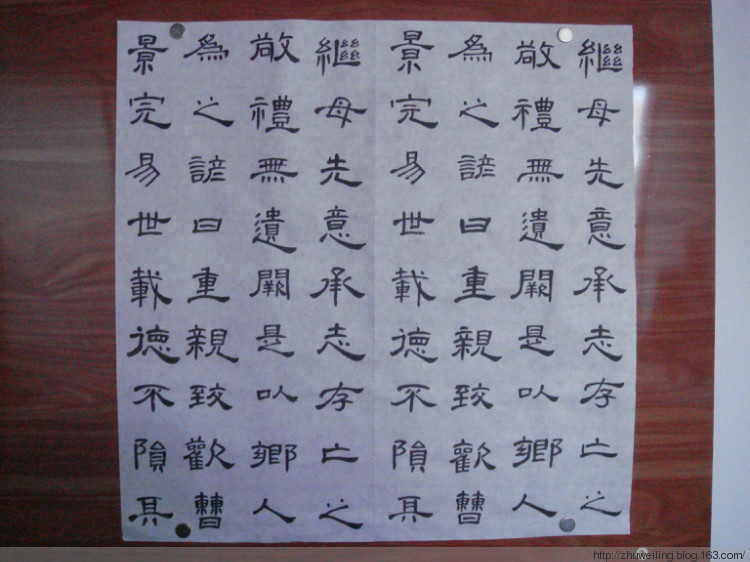 繼母先意承志存亡之
敬禮無遺闕是以鄉人
為之諺曰重親致歡曹
景完易世載德不隕其
繼母先意承志存亡之
敬禮無遺闕是以鄉人
為之諺曰重親致歡曹
景完易世載德不隕其
http://zhuweiling.blog.163.com/